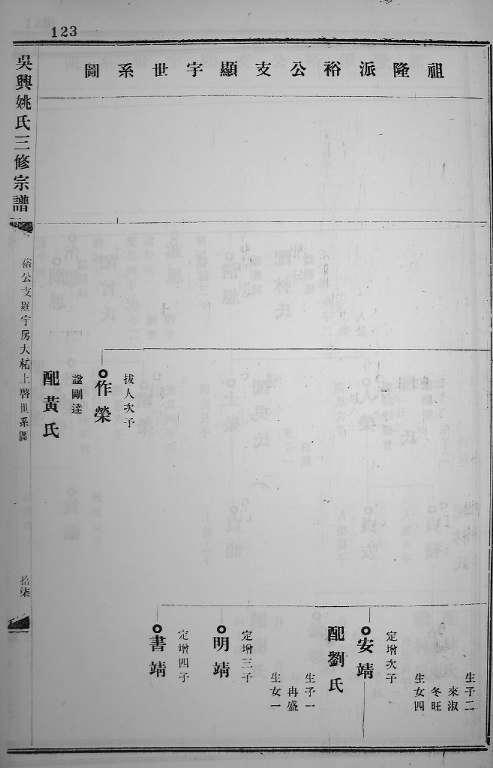 123
祖隆派裕公支顯宇世系圖
吳興姚氏三修宗譜
裕公支顯宇房大柘上啓世系圖
拾柒
拔人次子
作榮
諡剛達
配黃氏
生子二
來淑
冬旺
生女四
定增次子
安靖
配劉氏
生子一
冉盛
生女一
定增三子
明靖
定增四子
書靖